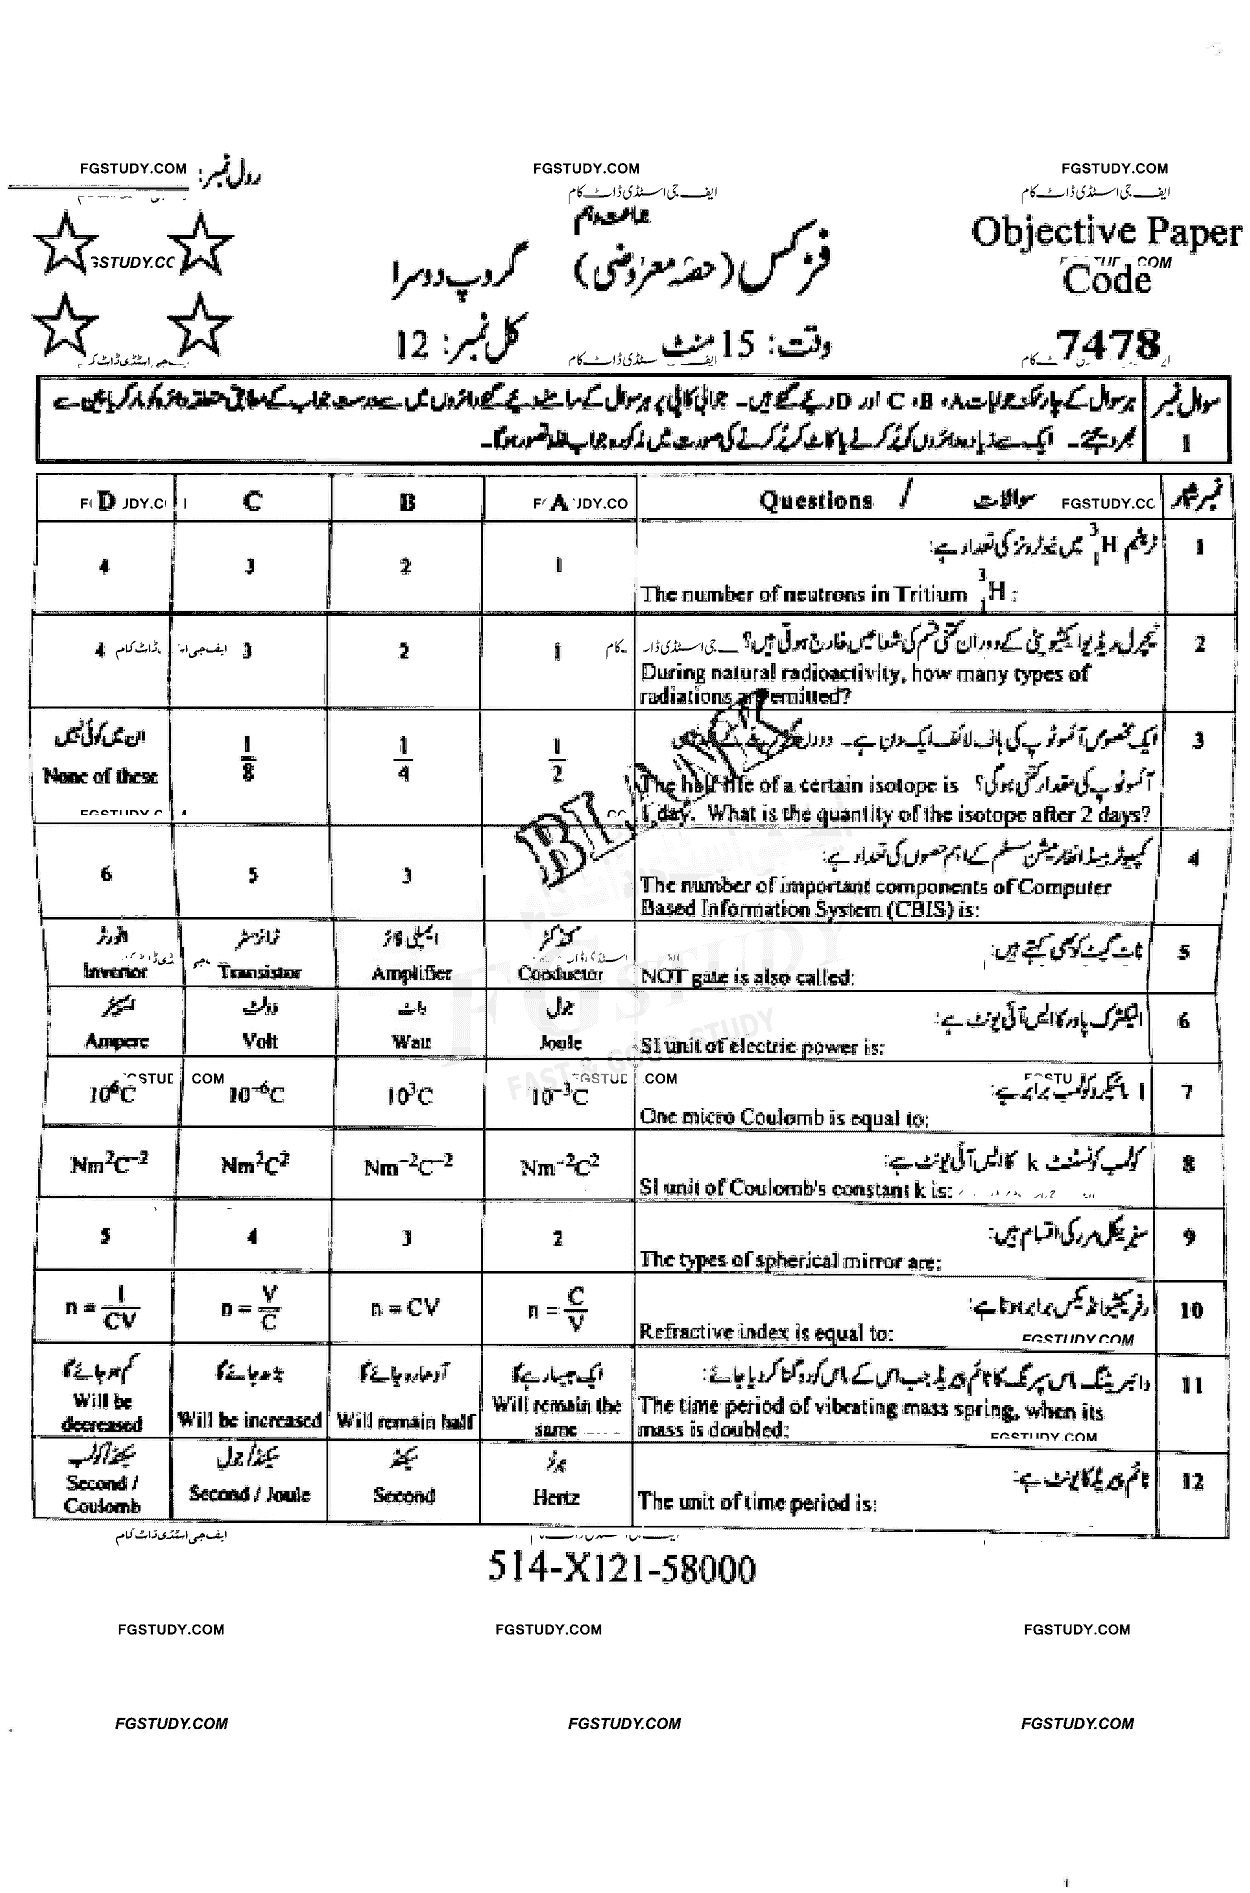 FGSTUDY.COM
رول نمبر:
FGSTUDY.COM
FGSTUDY.COM
ایف جی اسٹڈی ڈاٹ کام
ایف جی اسٹڈی ڈاٹ کام
جماعت دہم
Objective Paper
Code
7478
فزکس (حصہ معروضی)
گروپ دوسرا
وقت: 15 منٹ
کل نمبر: 12
سوال نمبر 1
ہر سوال کے چار ممکنہ جوابات A، B، C اور D دیئے گئے ہیں۔ جوابی کاپی پر ہر سوال کے سامنے دیئے گئے دائروں میں سے درست جواب کے مطابق متعلقہ دائرہ کو مارکر یا پین سے
بھر دیجئے۔ ایک سے زیادہ دائروں کو پُر کرنے یا کاٹ کر پُر کرنے کی صورت میں مذکورہ جواب غلط تصور ہوگا۔
D C B A Questions / سوالات نمبر شمار
1 ٹریٹیم ³₁H میں نیوٹرونز کی تعداد ہے:
The number of neutrons in Tritium ³₁H :
4 3 2 1
2 نیچرل ریڈیو ایکٹیویٹی کے دوران کتنی قسم کی شعاعیں خارج ہوتی ہیں؟
During natural radioactivity, how many types of
radiations are emitted?
4 3 2 1
3 ایک مخصوص آئسوٹوپ کی ہاف لائف ایک دن ہے۔ دو دن
آئسوٹوپ کی مقدار کتنی ہوگی؟ The half life of a certain isotope is
1 day. What is the quantity of the isotope after 2 days?
ان میں کوئی نہیں
None of these 1/8 1/4 1/2
4 کمپیوٹر بیسڈ انفارمیشن سسٹم کے اہم حصوں کی تعداد ہے:
The number of important components of Computer
Based Information System (CBIS) is:
6 5 3
5 ناٹ گیٹ کو بھی کہتے ہیں:
NOT gate is also called:
انورٹر ٹرانزسٹر ایمپلی فائر کنڈکٹر
Invertor Transistor Amplifier Conductor
6 الیکٹرک پاور کا ایس آئی یونٹ ہے:
SI unit of electric power is:
ایمپیئر وولٹ واٹ جول
Ampere Volt Watt Joule
7 1 مائیکرو کولمب برابر ہے:
One micro Coulomb is equal to:
10⁶C 10⁻⁶C 10³C 10⁻³C
8 کولمب کونسٹنٹ k کا ایس آئی یونٹ ہے:
SI unit of Coulomb's constant k is:
Nm²C⁻² Nm²C² Nm⁻²C⁻² Nm⁻²C²
9 سفیریکل مرر کی اقسام ہیں:
The types of spherical mirror are:
5 4 3 2
10 رفریکٹیو انڈیکس برابر ہوتا ہے:
Refractive index is equal to:
n = 1/CV n = V/C n = CV n = C/V
11 وائبریٹنگ ماس سپرنگ کا ٹائم پیریڈ جب اس کے ماس کو دوگنا کر دیا جائے:
The time period of vibrating mass spring, when its
mass is doubled:
کم ہو جائے گا بڑھ جائے گا آدھا رہ جائے گا ایک جیسا رہے گا
Will be decreased Will be increased Will remain half Will remain the same
12 ٹائم پیریڈ کا یونٹ ہے:
The unit of time period is:
سیکنڈ/کولمب سیکنڈ/جول سیکنڈ ہرٹز
Second / Coulomb Second / Joule Second Hertz
ایف جی اسٹڈی ڈاٹ کام
514-X121-58000
FGSTUDY.COM FGSTUDY.COM FGSTUDY.COM
FGSTUDY.COM FGSTUDY.COM FGSTUDY.COM
FGSTUDY
FAST & GOOD STUDY